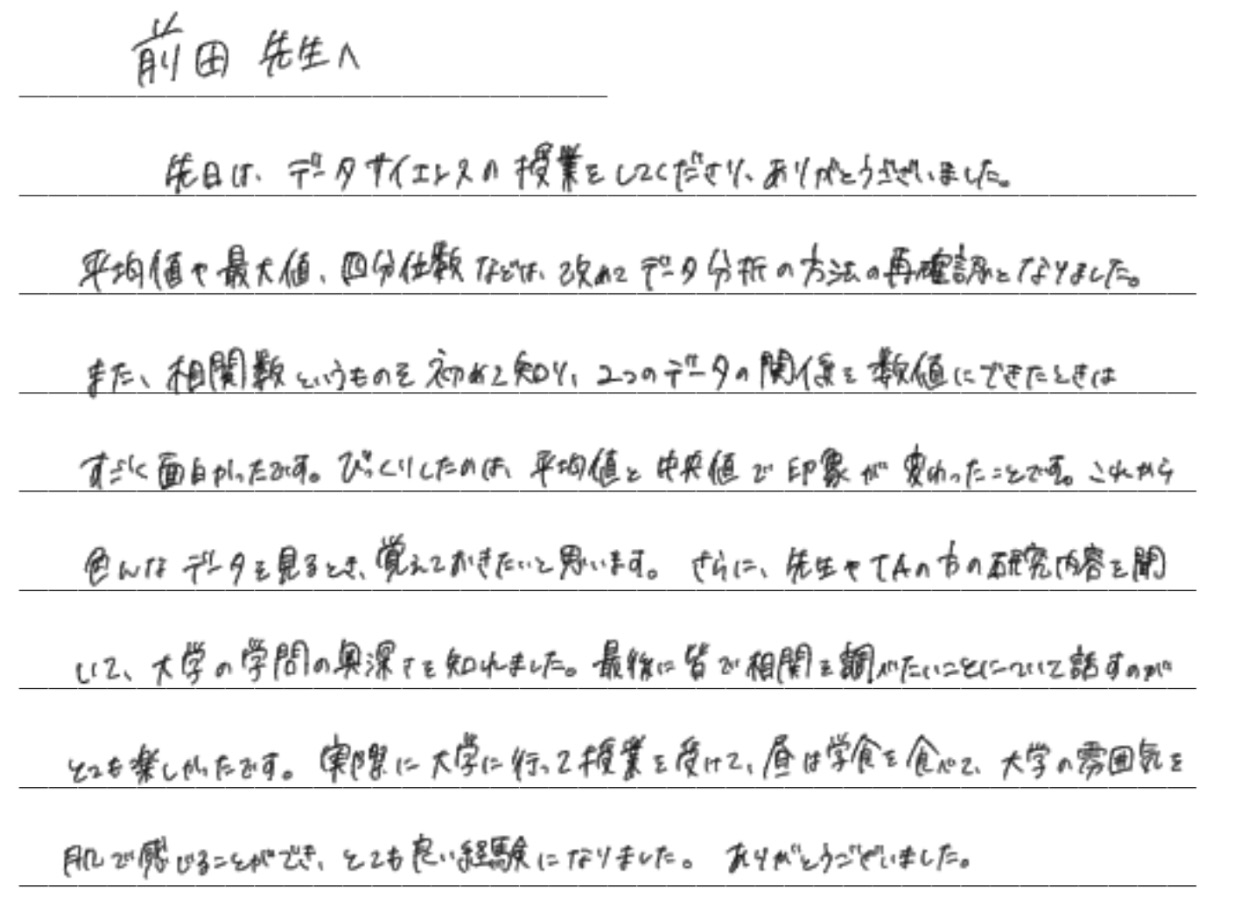 前田 先生へ
先日は、データサイエンスの授業をしてくださり、ありがとうございました。
平均値や最大値、四分位数などは、改めてデータ分析の方法の再確認となりました。
また、相関数というものを初めて知り、2つのデータの関係を数値にできたときは
すごく面白かったです。びっくりしたのは、平均値と中央値で印象が変わったことです。これから
色んなデータを見るとき、覚えておきたいと思います。 さらに、先生やTAの方の研究内容を聞
いて、大学の学問の奥深さを知れました。最後に皆で相関を調べたいことについて話すのが
とても楽しかったです。 実際に大学に行って授業を受けて、昼は学食を食べて、大学の雰囲気を
肌で感じることができ、とても良い経験になりました。 ありがとうございました。